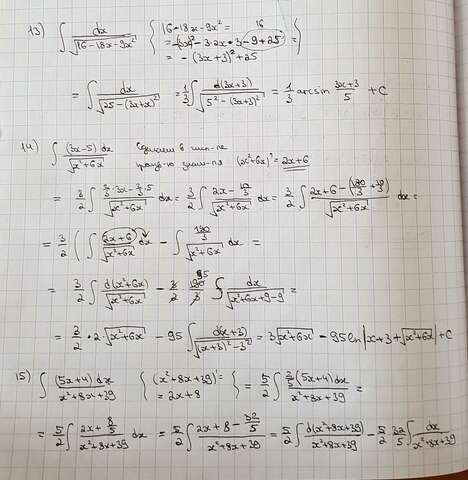 13) ∫ dx / √(16-18x-9x²) { 16-18x-9x² = 16
= -(3x)² - 3·2x·3 - 9 + 25 =
= -(3x+3)² + 25 }
= ∫ dx / √(25-(3x+3)²) = 1/3 ∫ d(3x+3) / √(5²-(3x+3)²) = 1/3 arcsin (3x+3)/5 + C
14) ∫ (3x-5) dx / √(x²+6x) Сделаем в числ-ле
произ-ю знам-ля (x²+6x)' = 2x+6
= 3/2 ∫ (2/3·3x - 2/3·5) / √(x²+6x) dx = 3/2 ∫ (2x - 10/3) / √(x²+6x) dx = 3/2 ∫ (2x+6-(180/3+10/3)) / √(x²+6x) dx =
= 3/2 ( ∫ (2x+6) / √(x²+6x) dx - ∫ (190/3) / √(x²+6x) dx =
= 3/2 ∫ d(x²+6x) / √(x²+6x) - 3/2 · 190/3 95 ∫ dx / √(x²+6x+9-9) =
= 3/2 · 2 √(x²+6x) - 95 ∫ d(x+3) / √((x+3)²-3²) = 3√(x²+6x) - 95 ln|x+3+√(x²+6x)| + C
15) ∫ (5x+4) dx / (x²+8x+39) { (x²+8x+39)' =
= 2x+8 } = 5/2 ∫ 2/5 (5x+4) dx / (x²+8x+39) =
= 5/2 ∫ (2x + 8/5) / (x²+8x+39) dx = 5/2 ∫ (2x+8 - 32/5) / (x²+8x+39) = 5/2 ∫ d(x²+8x+39) / (x²+8x+39) - 5/2 · 32/5 ∫ dx / (x²+8x+39)